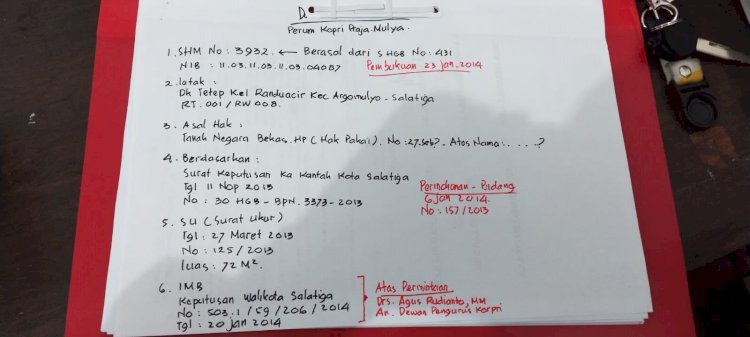 D.
Perum Kopri Praja Mulya.
1. SHM No : 3932. ← Berasal dari SHGB No : 431
NIB : 11.03.11.03.11.03.04087 Pembukuan 23 Jan. 2014
2. letak :
Dk Tetep Kel Randuacir Kec Argomulyo - Salatiga
RT. 001 / RW 008.
3. Asal Hak :
Tanah Negara Bekas HP (Hak Pakai). No : 27.seb?. Atas Nama : . . . . ?
4. Berdasarkan :
Surat Keputusan Ka Kantah Kota Salatiga
Tgl 11 Nop 2013
No : 30 HGB - BPN. 3373 - 2013
Perincihanan - Bidang
6 Jan 2014.
No : 157/2013
5. SU (Surat Ukur)
Tgl : 27 Maret 2013
No : 125 / 2013
luas : 72 M².
6. IMB
Keputusan Walikota Salatiga
No : 503.1 / 59 / 206 / 2014
Tgl : 20 Jan 2014
Atas Permintaan
Drs. Agus Rudianto, MM
An. Dewan Pengurus Korpri